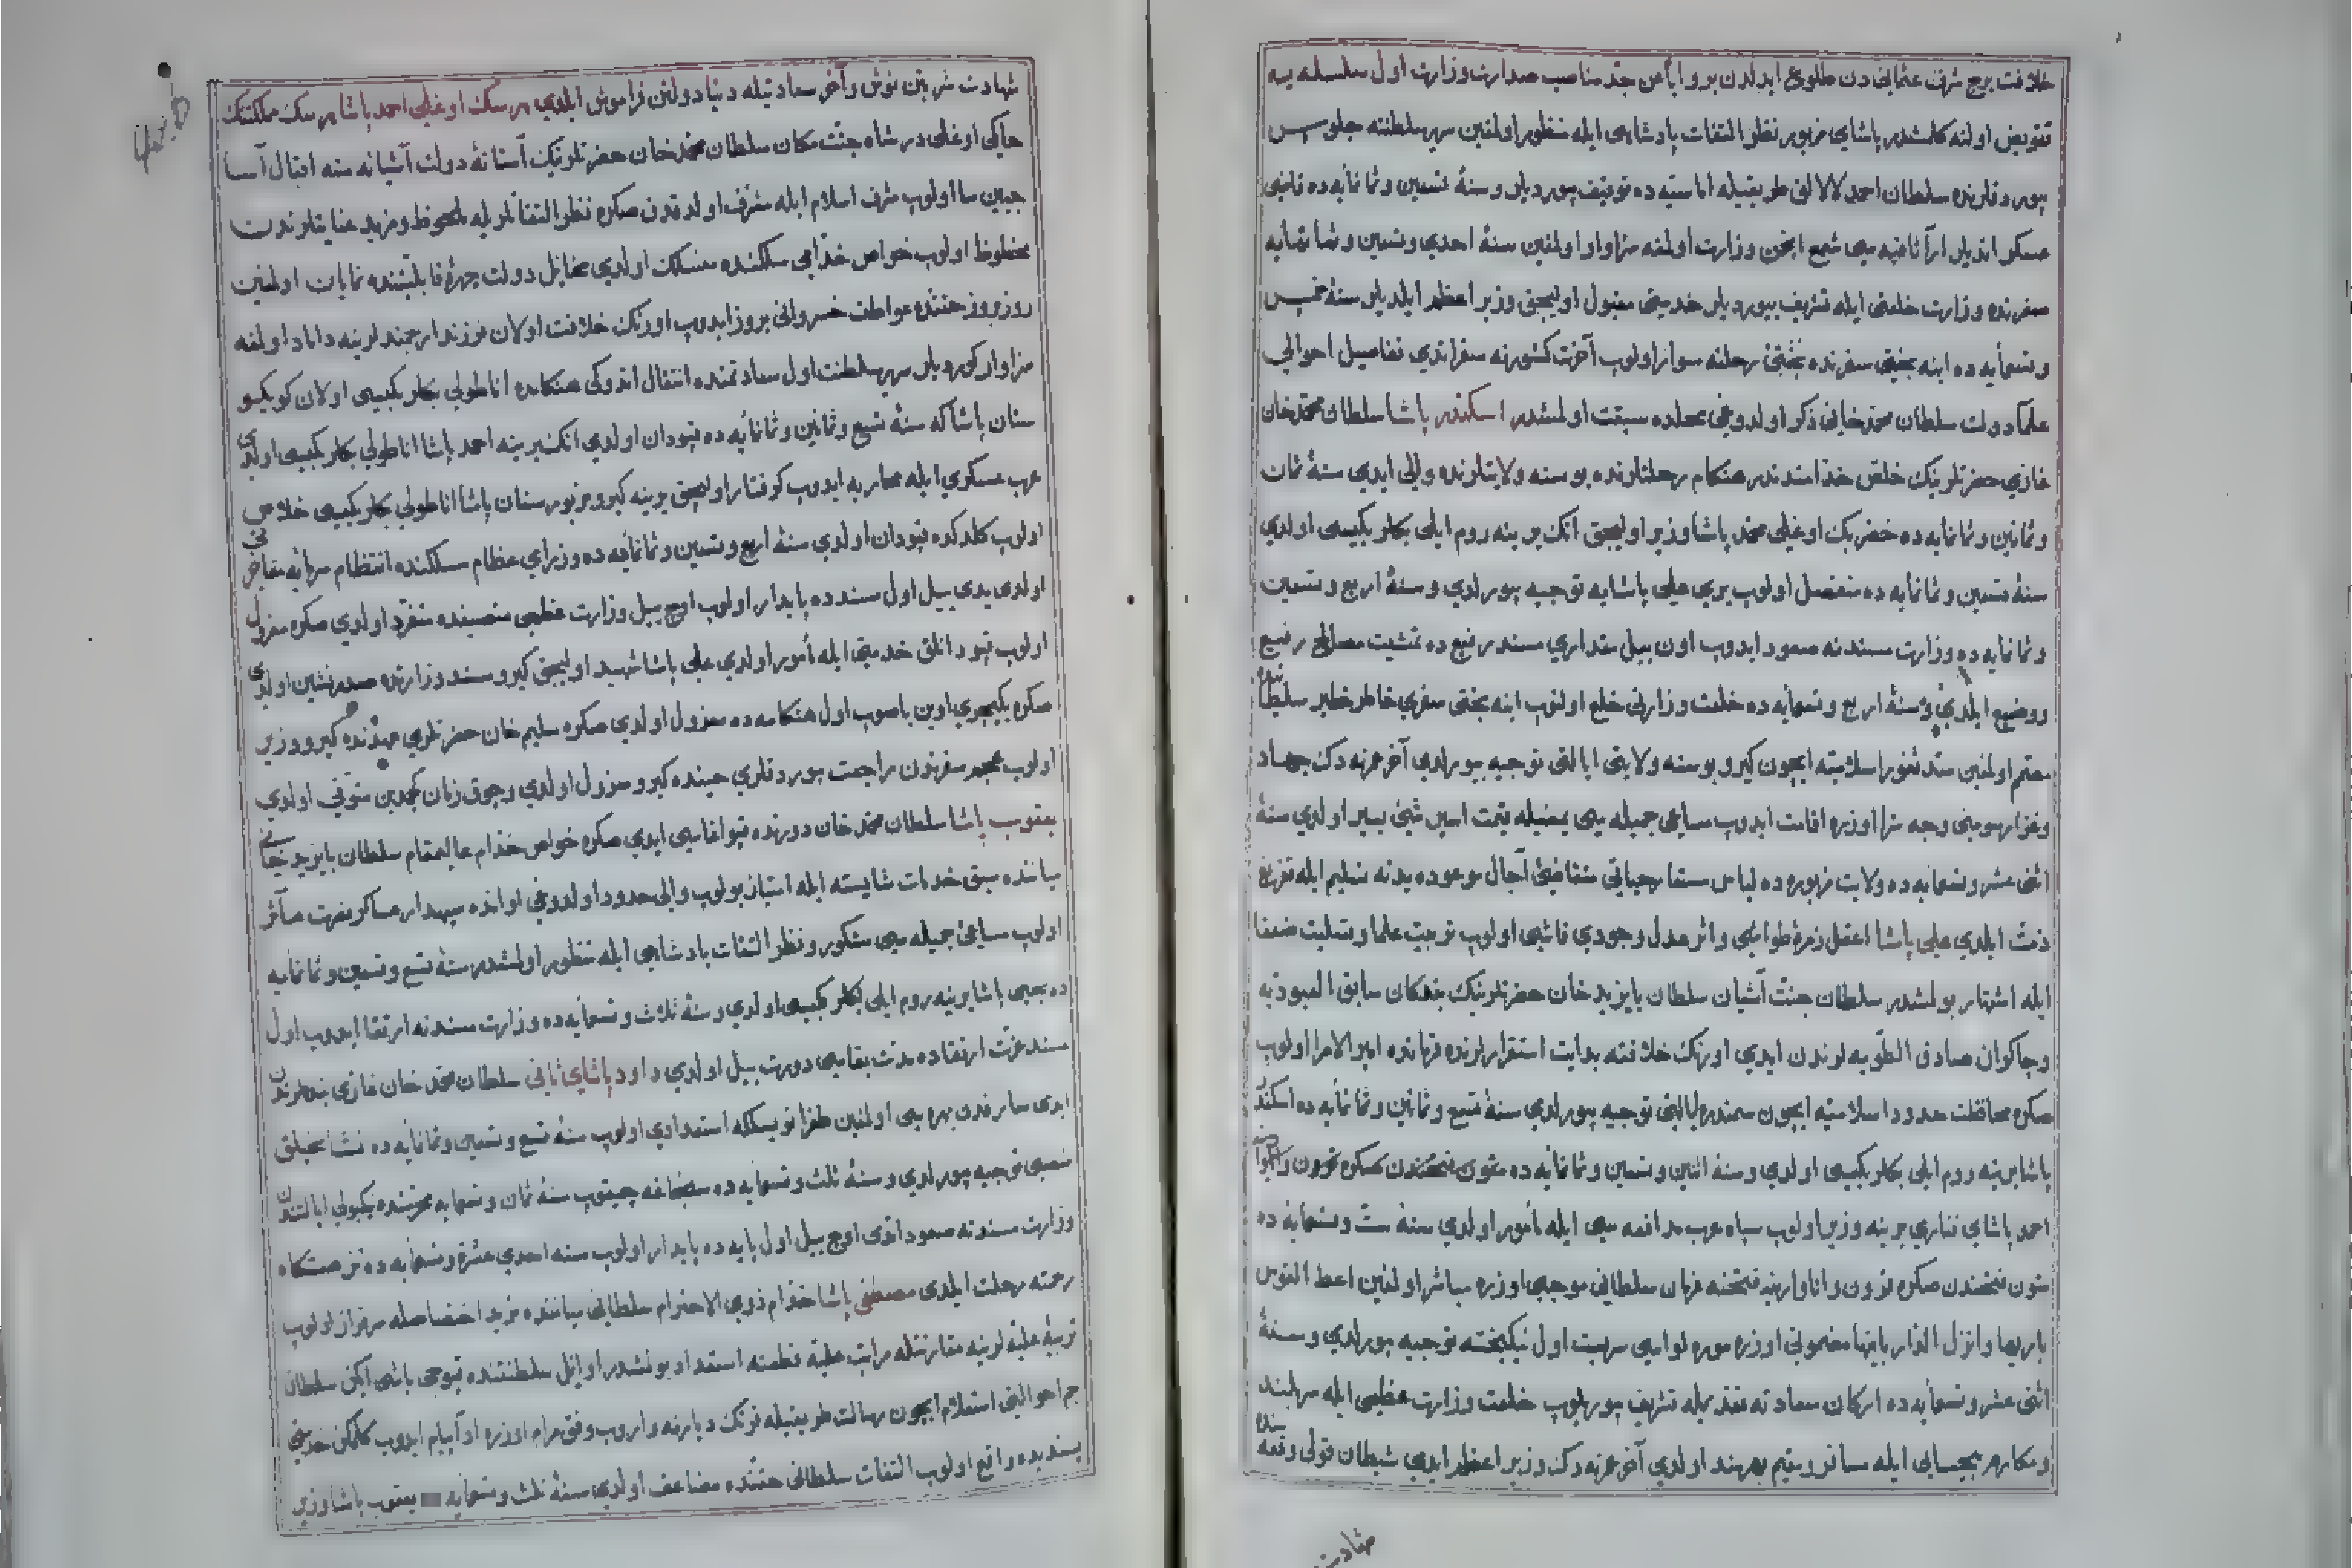 خلافت برج شرف عثمانی دن طلوع ایدلدن برو اباً عن جدّ مناصب صدارت وزارت اول سلسله یه
تفویض اولنه کلمشدر پاشای مزبور نظر التفات پادشاهی ایله منظور اولمغین سریر سلطنته جلوس
بیوردقلرنده سلطان احمد لالالق طریقیله اماسیه ده توقیف بیوردیلر و سنۀ تسعین و ثمانمایه ده قاضی
عسکر ایدیلر وزارت اولنمه سزاوار اولمغین سنۀ احدی و تسعین و ثمانمایه
سفرنده وزارت خلعتی ایله تشریف بیوردیلر خدمتی مقبول اولیجق وزیر اعظم ایلدیلر سنۀ خمس
و تسعمایه ده اینه بختی سفرنده رحلته سوار اولوب آخرت کشورنه سفر اتدی تفاصیل احوالی
علمآ دولت سلطان محمد خانی ذکر اولدوغی محلده سبقت اولمشدر اسکندر پاشا سلطان محمد خان
غازی حضرتلرینک خلص خدّامندندر هنکام رحلتلرنده بوسنه ولایتلرنده والی ایدی سنۀ ثمان
و ثمانین و ثمانمایه ده خضر بک اوغلی محمد پاشا وزیر اولیجق انک یرینه روم ایلی بکلر بکیسی اولدی
سنۀ تسعین و ثمانمایه ده منفصل اولوب یری علی پاشایه توجیه بیورلدی و سنۀ اربع و تسعین
و ثمانمایه ده وزارت مسندنه صعود ایدوب اون ییل مقداری مسند رفیع ده تمشیت مصالح رفیع
و وضیع ایلدی و سنۀ اربع و تسعمایه ده خلعت وزارتی خلع اولنوب اینه بختی سفری خاطر خطیر سلطانیده
مصمّم اولمغین سدّ ثغور اسلامیه ایچون کیرو بوسنه ولایتی ایالتی توجیه بیورلدی آخر عمرنه دک جهاد
و غزا رسومنی وجه سزا اوزره اقامت ایدوب مساعی جمیله سی اولدی سنۀ
اثنی عشر و تسعمایه ده ولایت مزبوره ده لباس مستعار حیاتی متقاضی آجال موعوده یدنه تسلیم ایله تفریغ
ذمّت ایلدی علی پاشا اعقل زمرۀ طواشی و اثر عدل وجودی فاشی اولوب تربیت علما و تسلیت ضعفا
ایله اشتهار بولمشدر سلطان جنّت آشیان سلطان بایزید خان حضرتلرینک بندکان سابق العبودیه
و چاکران صادق الطویه لرندن ایدی اورنک خلافته بدایت استقرارلرنده قرمانده امیر الامرا اولوب
صکره محافظت حدود اسلامیه ایچون سمندره ایالتی توجیه بیورلدی سنۀ تسع و ثمانین و ثمانمایه ده اسکندر
پاشا یرینه روم ایلی بکلر بکیسی اولدی و سنۀ اثنین و تسعین و ثمانمایه ده متون فتحندن صکره قرون و اناوارینه
احمد پاشای یرینه وزیر اولوب سپاه عرب مدافعه سی ایله مأمور اولدی سنۀ ستّ و تسعمایه ده
متون فتحندن صکره قرون و اناوارینه فتحنه فرمان سلطانی موجبی اوزره مباشر اولمغین اعط القوس
باریها و انزل الدار بانیها مضمونی اوزره موره لواسی سربست اول نیکبخته توجیه بیورلدی و سنۀ
اثنی عشر و تسعمایه ده ارکان سعادته تقدیمیله تشریف بیوریلوب خلعت وزارت عظمی ایله سربلند
و مکارم بیحسابی ایله مسافر و مقیم بهرمند اولدی آخر عمرنه دک وزیر اعظم ایدی شیطان قولی وقعه سنده
شهادت
شهادت شربتن نوش و آخر سعادتیله دنیا دولتین فراموش ایلدی هرسک اوغلی احمد پاشا هرسک مملکتنک
حاکمی اوغلی در شاه جنّت مکان سلطان محمد خان حضرتلرینک آستانۀ دولت آشیانه سنه اقبال آسا
جبین سا اولوب شرف اسلام ایله مشرّف اولدقدن صکره نظر التفاتلریله ملحوظ و مزید عنایتلرندن
محظوظ اولوب خواص خدّامی سلکنده منسلک اولدی مخایل دولت چهرۀ قابلیتنده نمایان اولمغین
روز بروز حقنده عواطف خسروانی بروز ایدوب اورنک خلافت اولان فرزند ارجمندلرینه داماد اولمغه
سزاوار کوردیلر سریر سلطنت اول سعادتمنده انتقال اتدوکی هنکامده اناطولی بکلر بکیسی اولان کویکو
سنان پاشا که سنۀ تسع و ثمانین و ثمانمایه ده قپودان اولدی انک یرینه احمد پاشا اناطولی بکلر بکیسی اولدی
عرب عسکری ایله محاربه ایدوب کرفتار اولیجق یرینه کیرو مزبور سنان پاشا اناطولی بکلر بکیسی خلاص
اولوب کلدکده قپودان اولدی سنۀ اربع و تسعین و ثمانمایه ده وزرای عظام سلکنده انتظام سرمایه مفاخرتی
اولدی یدی ییل اول مسندده پایدار اولوب اوچ ییل وزارت عظمی منصبنده متفرّد اولدی صکره معزول
اولوب قپودانلق خدمتی ایله مأمور اولدی علی پاشا شهید اولیجق کیرو مسند وزارتده صدرنشین اولدی
صکره یکیچری اوین باصوب اول هنکامه ده معزول اولدی صکره سلیم خان حضرتلری عهدنده کیرو وزیر
اولوب عجم سفرندن مراجعت بیوردقلری حینده کیرو معزول اولدی و چوق زمان کچمدین متوفّی اولدی
یعقوب پاشا سلطان محمد خان دورنده قپو اغاسی ایدی صکره خواص خدّام عالیمقام سلطان بایزید خانی
میاننده سبق خدمات شایسته ایله امتیاز بولوب والی حدود اولدوغی اوانده سپهدار عساکر نصرت مآثر
اولوب مساعی جمیله سی مشکور و نظر التفات پادشاهی ایله منظور اولمشدر سنۀ تسع و تسعین و ثمانمایه
ده یحیی پاشا یرینه روم ایلی بکلر بکیسی اولدی و سنۀ ثلاث و تسعمایه ده وزارت مسندنه ارتقا ایدوب اول
مسند عزّت ارتقاده مدّت بقاسی دورت ییل اولدی داود پاشای ثانی سلطان محمد خان غازی بنده لرندن
ایدی معارفدن بهره سی اولمغین طغرا نویسلکه استعدادی اولوب سنۀ تسع و تسعین و ثمانمایه ده نشانجیلق
منصبی توجیه بیورلدی و سنۀ ثلث و تسعمایه ده سنجاغه چیقوب سنۀ ثمان و تسعمایه نیکبولی ایالتندن
وزارت مسندنه صعود اتدی اوچ ییل اول پایه ده پایدار اولوب سنه احدی عشره و تسعمایه ده
رحمته رحلت ایلدی مصطفی پاشا خدّام ذوی الاحترام سلطانی میاننده مزید اختصاصله سرفراز اولوب
تربیۀ علیّه لرینه مقارنتله مراتب علیّه قطعنه استعداد بولمشدر اوایل سلطنتنده قپوجی باشی ایکن سلطان
جم احوالنی استعلام ایچون رسالت طریقیله فرنک دیارنه واروب وفق مرام اوزره ایدوب کلمکن خدمتی
پسندیده واقع اولوب التفات سلطانی حقنده مضاعف اولدی سنۀ ثلث و تسعمایه یعقوب پاشا وزیر